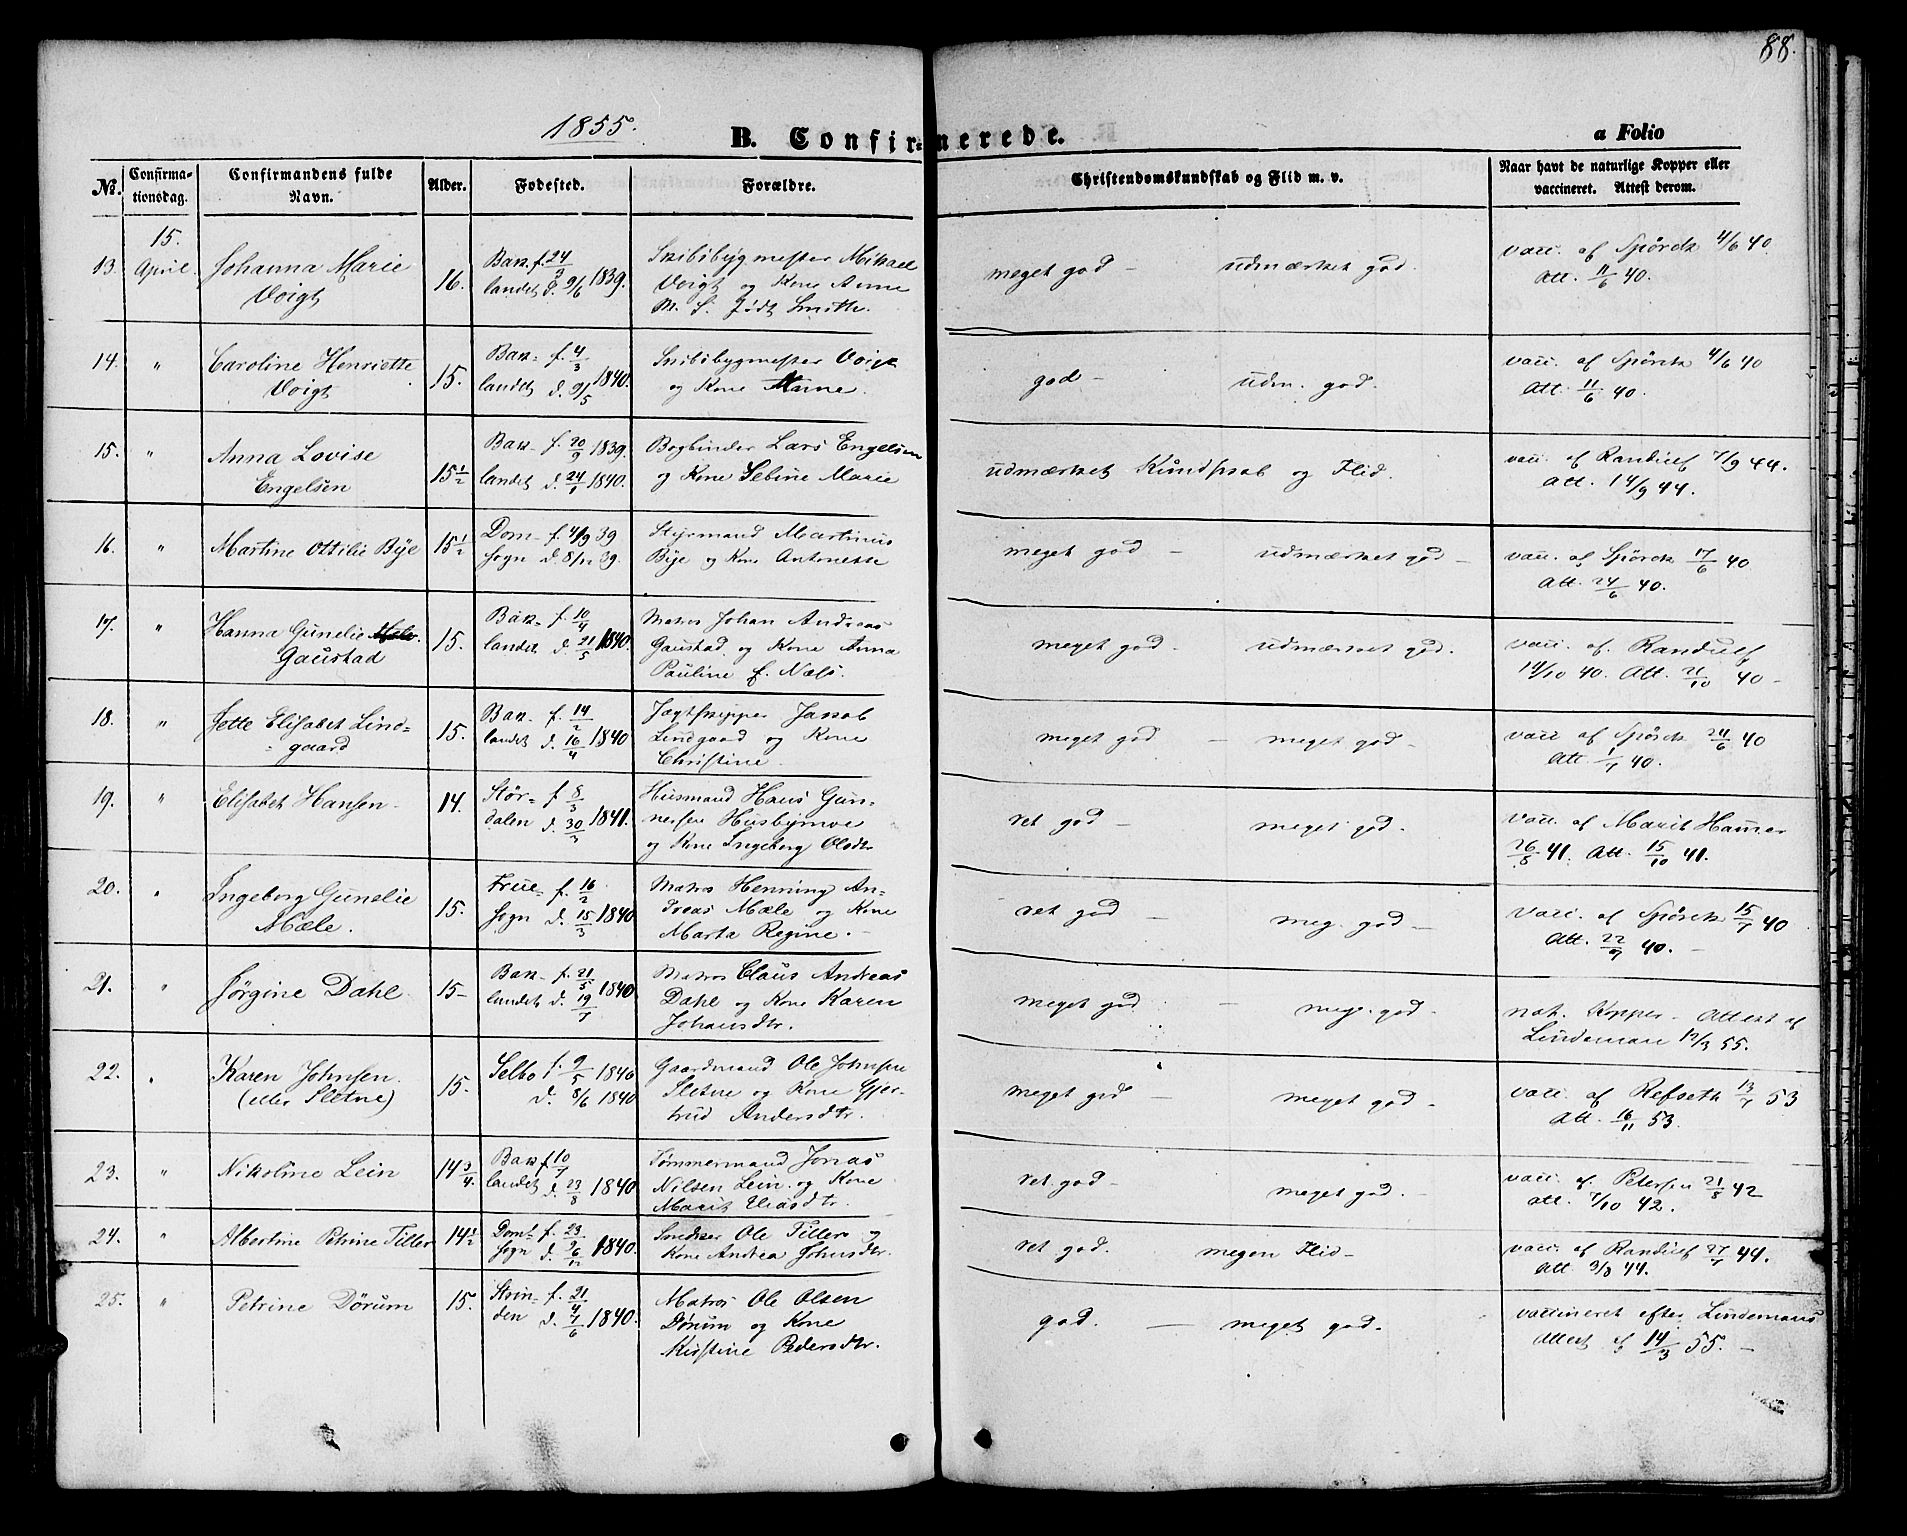 88.
1855.
B. Confirmerede.
a Folio
No.
Confirma-
tionsdag.
Confirmandens fulde
Navn.
Alder.
Fødested.
Forældre.
Christendomskundskab og Flid m. v.
Naar havt de naturlige Kopper eller
vaccineret. Attest derom.
13.
15.
April.
Johanna Marie
Voigt
16.
Bak. f. 24/3
landet d. 9/6 1839.
Skibsbygmester Mikael
Voigt og Kone Anne
M. S. født Smith.
meget god – udmærket god.
vacc. af Spörck 4/6 40
Att. 11/6 40.
14.
"
Caroline Henriette
Voigt
15.
Bak- f. 4/3
landet d. 9/5 1840.
Skibsbygmester Voigt
og Kone Anne.
god – udm. god.
vacc. af Spörck 4/6 40
Att. 11/6 40.
15.
"
Anna Lovise
Engelsen
15 1/2
Bak- f. 20/9 1839.
landet d. 24/1 1840.
Bogbinder Lars Engelsen
og Kone Sebine Marie
udmærket Kundskab og Flid.
vacc. af Randulf 7/9 44.
Att. 14/9 44.
16.
"
Martine Ottilie Bye
15 1/2
Dom- f. 4/9 39
sogn d. 8/12 39.
Styrmand Martinus
Bye og Kone Antonette
meget god – udmærket god –
vacc. af Spörck 17/6 40
Att. 24/6 40.
17.
"
Hanna Gunelie
Gaustad
15.
Bak- f. 10/4
landet d. 21/5 1840.
Matros Johan Andreas
Gaustad og Kone Anna
Pauline f. Næss.
meget god. udmærket god.
vacc. af Randulf
14/10 40. Att. 21/10 40 –
18.
"
Jette Elisabet Lind=
=gaard
15.
Bak- f. 14/2
landet d. 16/4 1840
Jagtskipper Jakob
Lindgaard og Kone
Christine.
meget god – meget god –
vacc af Spörck 24/6 40
Att. 1/7 40.
19.
"
Elisabet Hansen
14.
Stør- f. 8/3
dalen d. 30/3 1841.
Husmand Hans Gun-
nersen Husbymoe
og Kone Ingeborg Olsdtr
ret god – meget god.
vacc. af Marit Hammer
26/8 41. Att. 15/10 41.
20.
"
Ingeborg Gunelie
Mæle.
15.
Frue- f. 16/2
sogn d. 15/3 1840
Matros Henning An-
dreas Mæle og Kone
Marta Regine. –
ret god – meg. god –
vacc. af Spörck 15/7 40
Att. 22/7 40. –
21.
"
Jørgine Dahl.
15 –
Bak- f. 21/5
landet d. 19/7 1840
Matros Claus Andreas
Dahl og Kone Karen
Johansdtr.
meget god – meg. god. –
nat. Kopper – Attest af
Lindeman 12/3 55.
22.
"
Karen Johnsen
(eller Sletne)
15.
Selbo f. 9/5 1840
d. 8/6 1840
Gaardmand Ole Johnsen
Sletne og Kone Gjer-
trud Andersdtr.
meget god – meget god –
vacc. af Refseth 13/7 53
Att. 16/11 53.
23.
"
Nikoline Lein
14 3/4.
Bak f 10/7
landet d. 23/8 1840
Tømmermand Jonas
Nilsen Lein og Kone
Marit Eliasdtr.
ret god – meget god. –
vacc. af Petersen 21/8 42
Att. 7/10 42.
24.
"
Albertine Petrine Tiller
14 1/2
Dom- f. 23/9
sogn d. 6/12 1840.
Snedker Ole Tiller og
Kone Andrea Johnsdtr.
ret god. megen Flid –
vacc. af Randulf 27/7 44.
Att 3/8 44.
25.
"
Petrine Dørum
15.
Strin- f. 21/4
den d. 7/6 1840.
Matros Ole Olsen
Dørum og Kone
Kirstine Pedersdtr.
god. – meget god.
vaccineret efter Lindemans
Attest af 14/3 55. –